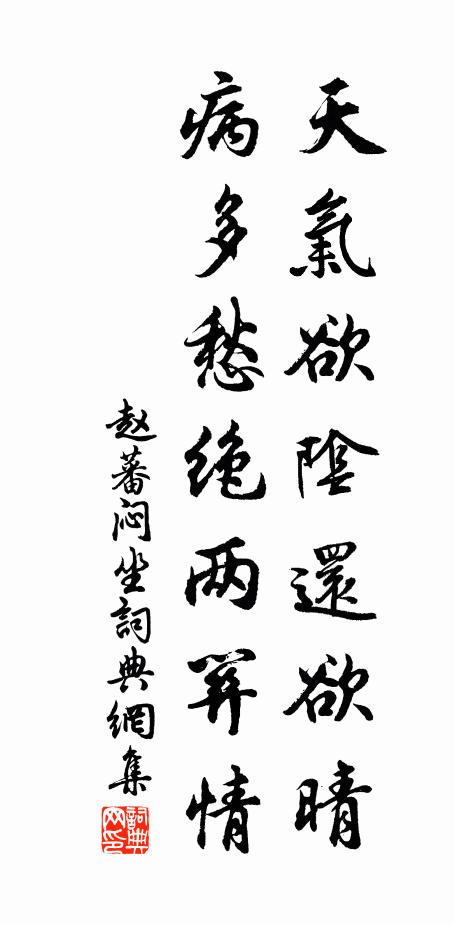 天氣欲陰還欲晴
病多愁绝两關情
赵蕃闷坐詞典網集
詞典
网印